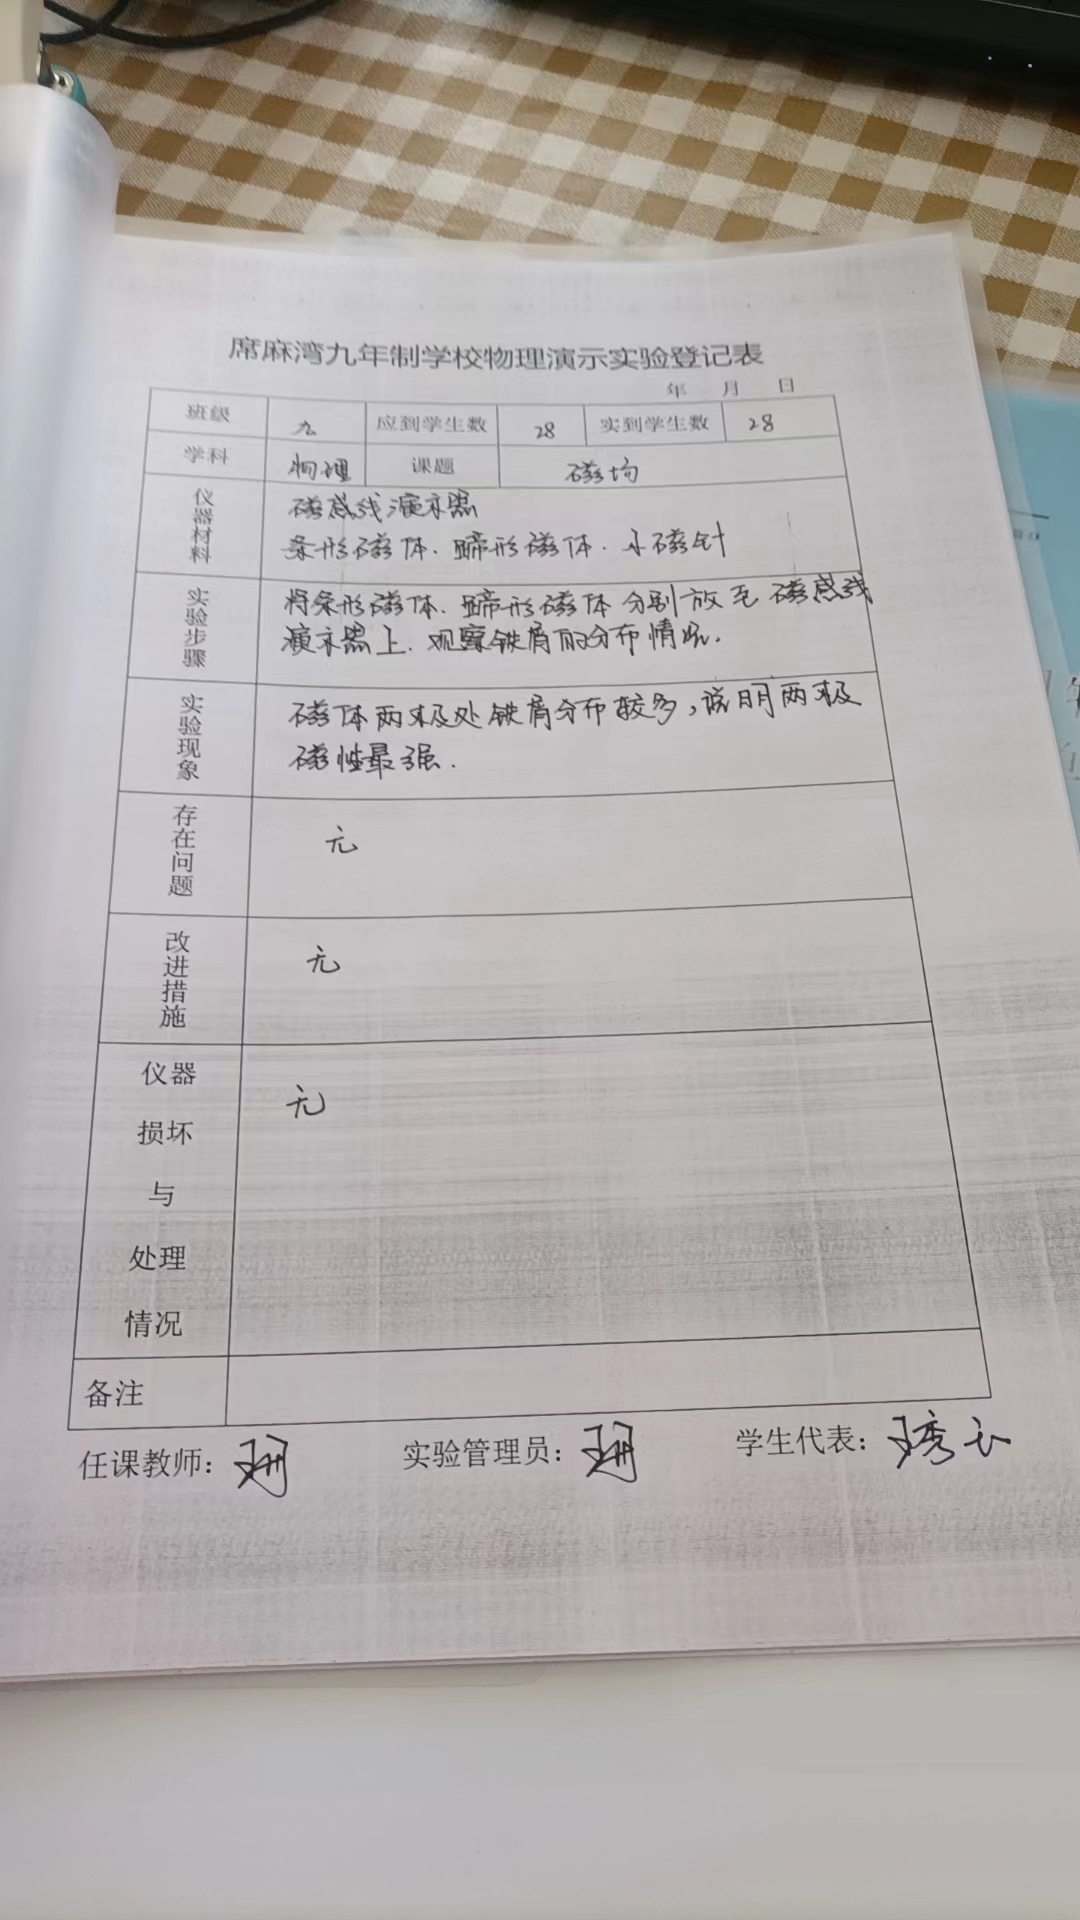 席麻湾九年制学校物理演示实验登记表
年 月 日
班级 九 应到学生数 28 实到学生数 28
学科 物理 课题 磁场
仪器材料 磁感线演示器
条形磁体、蹄形磁体、小磁针
实验步骤 将条形磁体、蹄形磁体分别放至磁感线
演示器上、观察铁屑的分布情况.
实验现象 磁体两极处铁屑分布较多,说明两极
磁性最强.
存在问题 无
改进措施 无
仪器 无
损坏
与
处理
情况
备注
任课教师: 实验管理员: 学生代表: